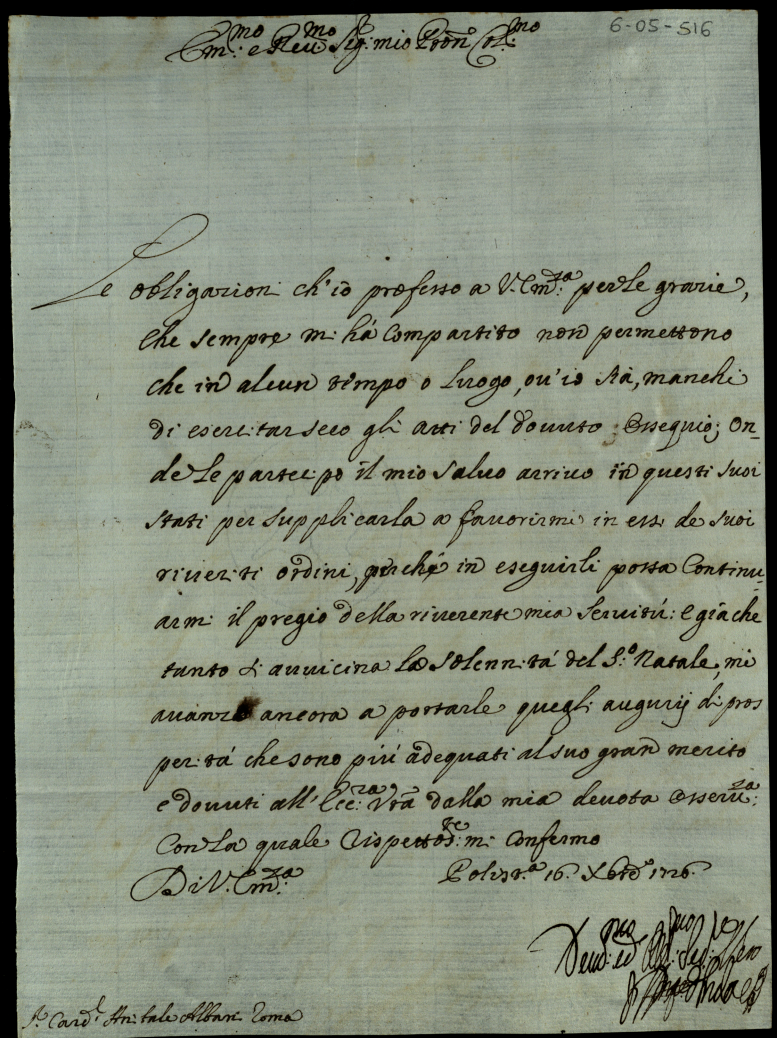 6-05-516
Em:mo e Rev:mo Sig:r mio Pron Col:mo
Le obligazioni ch'io professo a V. Em:za per le grazie,
che sempre mi há compartito non permettono
che in alcun tempo o luogo, ou'io sia, manchi
di esercitar seco gli atti del douuto Ossequio; On-
de le partecipo il mio saluo arriuo in questi suoi
stati per supplicarla a fauorirmi in essi de suoi
riueriti ordini, perché in eseguirli possa Continu-
armi il pregio della riuerente mia Seruitú: e giache
tanto si auuicina la Solennitá del S:o Natale, mi
auanzo ancora a portarle quegli augurij di pros
peritá che sono piú adequati al suo gran merito
e douuti all'Ecc:za Vrã dalla mia deuota Osseru:za
Con la quale rispettos:te mi Confermo
Di V. Em:za
16. Xbre 1726.
S.r Card.l Annibale Albani Roma